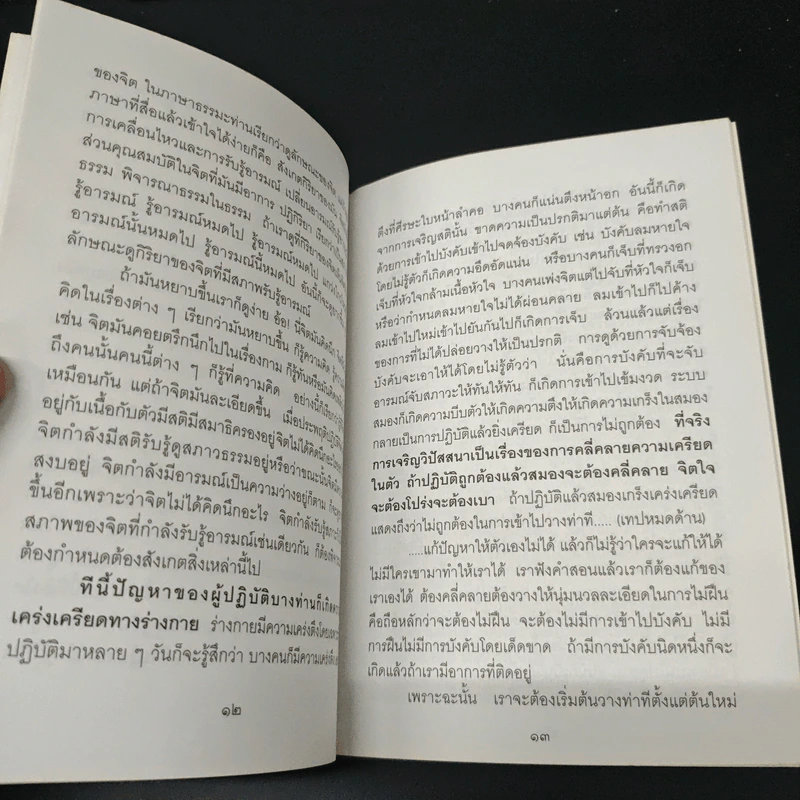 ของจิต ในภาษาธรรมะท่านเรียกว่าดูลักษณะของจิต
ภาษาที่สื่อแล้วเข้าใจได้ง่ายก็คือ สังเกตกิริยาของ
การเคลื่อนไหวและการรับรู้อารมณ์ เปลี่ยนอารมณ์
ส่วนคุณสมบัติในจิตที่มันมีอาการ ปฏิกิริยา เรียกว่า
ธรรม พิจารณาธรรมในธรรม ถ้าเราดูที่กิริยาของจิต
รู้อารมณ์ รู้อารมณ์หมดไป รู้อารมณ์หมดไป
อารมณ์นั้นหมดไป รู้อารมณ์นี้หมดไป อันนี้ก็จะ
ลักษณะดูกิริยาของจิตที่มีสภาพรับรู้อารมณ์
ถ้ามันหยาบขึ้นเราก็ดูง่าย อ้อ! นี่จิตมันคิดนึก
คิดในเรื่องต่าง ๆ เรียกว่ามันหยาบขึ้น ก็รู้ความคิด
เช่น จิตมันคอยตรึกนึกไปในเรื่องกาม ก็รู้ทัน
ถึงคนนั้นคนนี้ต่าง ๆ ก็รู้ที่ความคิด อย่างนี้ก็เรียกว่า
เหมือนกัน แต่ถ้าจิตมันละเอียดขึ้น เมื่อประพฤติปฏิบัติ
อยู่กับเนื้อกับตัวมีสติมีสมาธิครองอยู่จิตไม่ได้คิดนึก
จิตกำลังมีสติรับรู้ดูสภาวธรรมอยู่หรือว่าขณะนั้นจิต
สงบอยู่ จิตกำลังมีอารมณ์เป็นความว่างอยู่ก็ตาม
ขึ้นอีกเพราะว่าจิตไม่ได้คิดนึกอะไร จิตกำลังรับรู้
สภาพของจิตที่กำลังรับรู้อารมณ์เช่นเดียวกัน ก็ต้อง
ต้องกำหนดต้องสังเกตสิ่งเหล่านี้ไป
ทีนี้ปัญหาของผู้ปฏิบัติบางท่านก็เกิด
เคร่งเครียดทางร่างกาย ร่างกายมีความเคร่งตึงโดย
ปฏิบัติมาหลาย ๆ วันก็จะรู้สึกว่า บางคนก็มีความเคร่งตึง
๑๒
ตึงที่ศีรษะใบหน้าลำคอ บางคนก็แน่นตึงหน้าอก อันนี้ก็เกิด
จากการเจริญสตินั้น ขาดความเป็นปรกติมาแต่ต้น คือทำสติ
ด้วยการเข้าไปบังคับเข้าไปจดจ้องบังคับ เช่น บังคับลมหายใจ
โดยไม่รู้ตัวก็เกิดความอึดอัดแน่น หรือบางคนก็เจ็บที่ทรวงอก
เจ็บที่หัวใจกล้ามเนื้อหัวใจ บางคนเพ่งจิตแต่ไปจับที่หัวใจก็เจ็บ
หรือว่ากำหนดลมหายใจไม่ได้ผ่อนคลาย ลมเข้าไปก็ไปค้าง
ลมเข้าไปใหม่เข้าไปยันกันไปก็เกิดการเจ็บ ล้วนแล้วแต่เรื่อง
ของการที่ไม่ได้ปล่อยวางให้เป็นปรกติ การดูด้วยการจับจ้อง
บังคับจะเอาให้ได้โดยไม่รู้ตัวว่า นั่นคือการบังคับที่จะจับ
อารมณ์จับสภาวะให้ทันให้ทัน ก็เกิดการเข้าไปเข้มงวด ระบบ
สมองก็เกิดความบีบตัวให้เกิดความตึงให้เกิดความเกร็งในสมอง
กลายเป็นการปฏิบัติแล้วยิ่งเครียด ก็เป็นการไม่ถูกต้อง ที่จริง
การเจริญวิปัสสนาเป็นเรื่องของการคลี่คลายความเครียด
ในตัว ถ้าปฏิบัติถูกต้องแล้วสมองจะต้องคลี่คลาย จิตใจ
จะต้องโปร่งจะต้องเบา ถ้าปฏิบัติแล้วสมองเกร็งเคร่งเครียด
แสดงถึงว่าไม่ถูกต้องในการเข้าไปวางท่าที..... (เทปหมดด้าน)
.....แก้ปัญหาให้ตัวเองไม่ได้ แล้วก็ไม่รู้ว่าใครจะแก้ให้ได้
ไม่มีใครเขามาทำให้เราได้ เราฟังคำสอนแล้วเราก็ต้องแก้ของ
เราเองได้ ต้องคลี่คลายต้องวางให้นุ่มนวลละเอียดในการไม่ฝืน
คือถือหลักว่าจะต้องไม่ฝืน จะต้องไม่มีการเข้าไปบังคับ ไม่มี
การฝืนไม่มีการบังคับโดยเด็ดขาด ถ้ามีการบังคับนิดหนึ่งก็จะ
เกิดแล้วถ้าเรามีอาการที่ติดอยู่
เพราะฉะนั้น เราจะต้องเริ่มต้นวางท่าทีตั้งแต่ต้นใหม่
๑๓